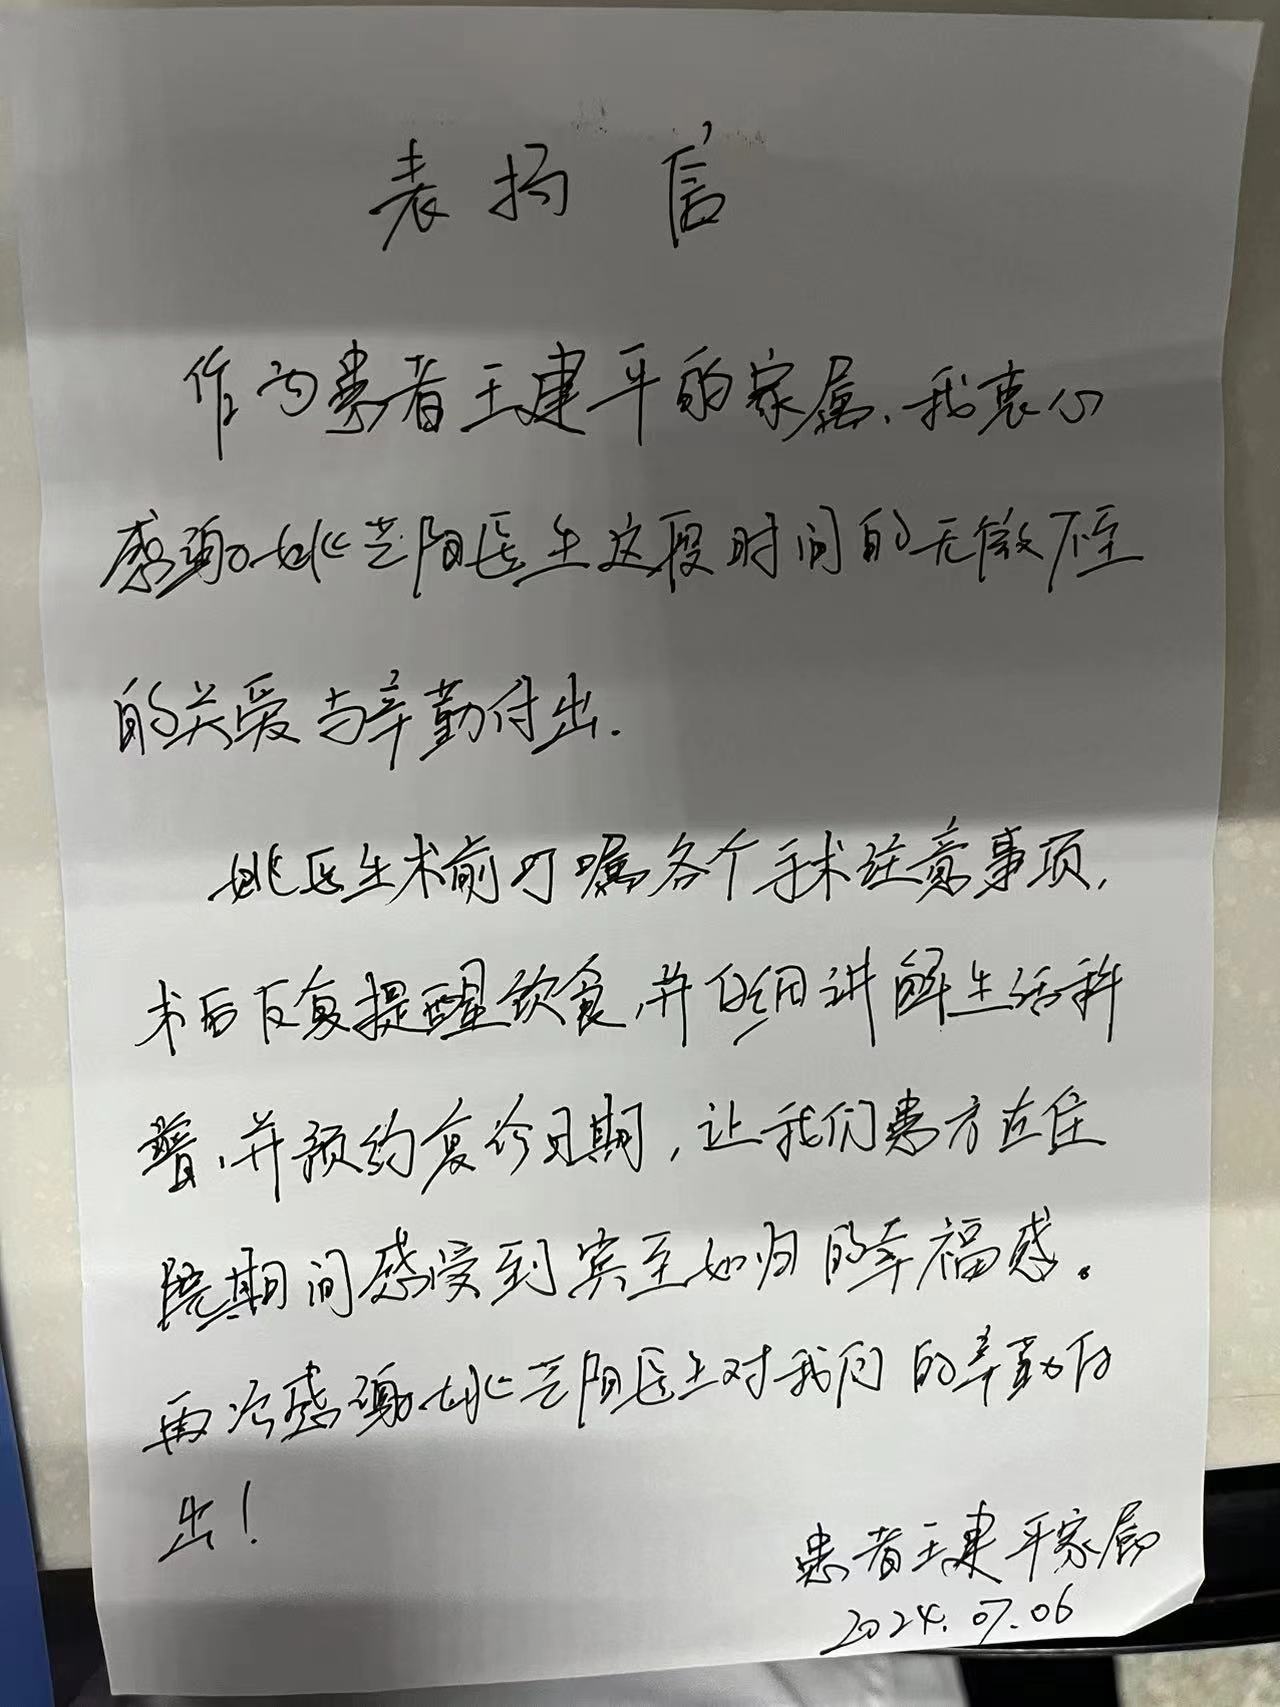 表扬信
作为患者王建平的家属、我衷心
感谢姚芸阳医生这段时间的无微不至
的关爱与辛勤付出.
姚医生术前叮嘱各个手术注意事项,
术后反复提醒饮食,并仔细讲解生活科
普,并预约复诊日期,让我们患方在住
院期间感受到宾至如归的幸福感。
再次感谢姚芸阳医生对我们的辛勤付
出!
患者王建平家属
2024.07.06